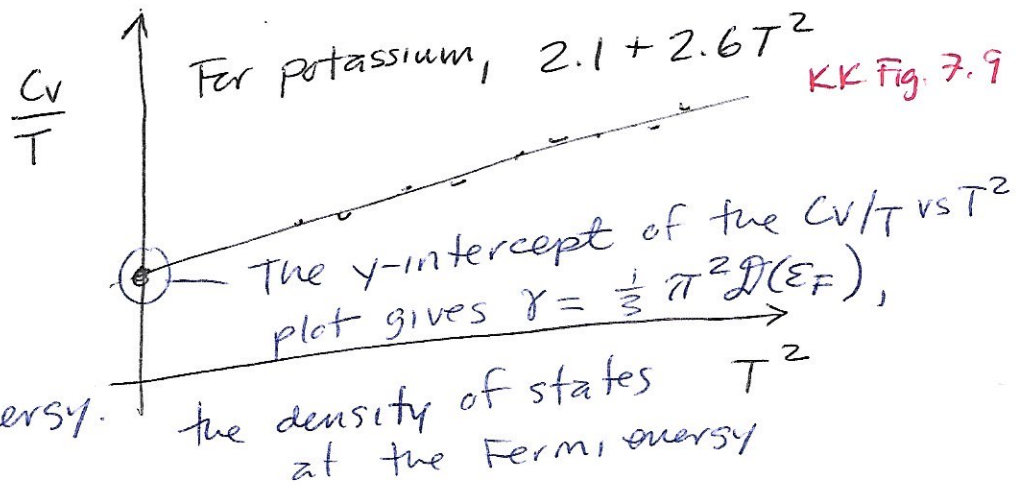 Cv/T
For potassium, 2.1 + 2.6T²
KK Fig. 7.9
The y-intercept of the Cv/T vs T²
plot gives γ = 1/3 π² D(εF),
T²
ergy.
the density of states
at the Fermi energy